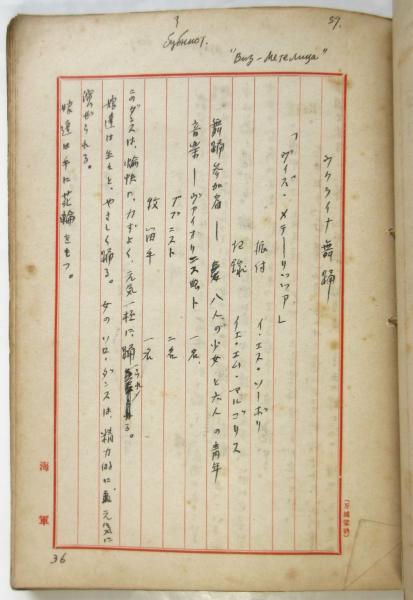 3
59.
бубнист.
"Виз-метелица"
ウクライナ舞踊
「ヴィズ・メテーリツァ」
振付 イ・エス・ソーボリ
記録 イ・エム・マルゴリス
舞踊参加者— 八人の少女と六人の青年
音楽—ヴァイオリニスト 一名、
ブブニスト 二名
一名
このダンスは、愉快に、力づよく、元気一杯に、踊られる。
娘達は生々と、やさしく踊る。女のソロ・ダンスは、精力的に、元気に
演ぜられる。
娘達は手に花輪をもつ。
海軍
36